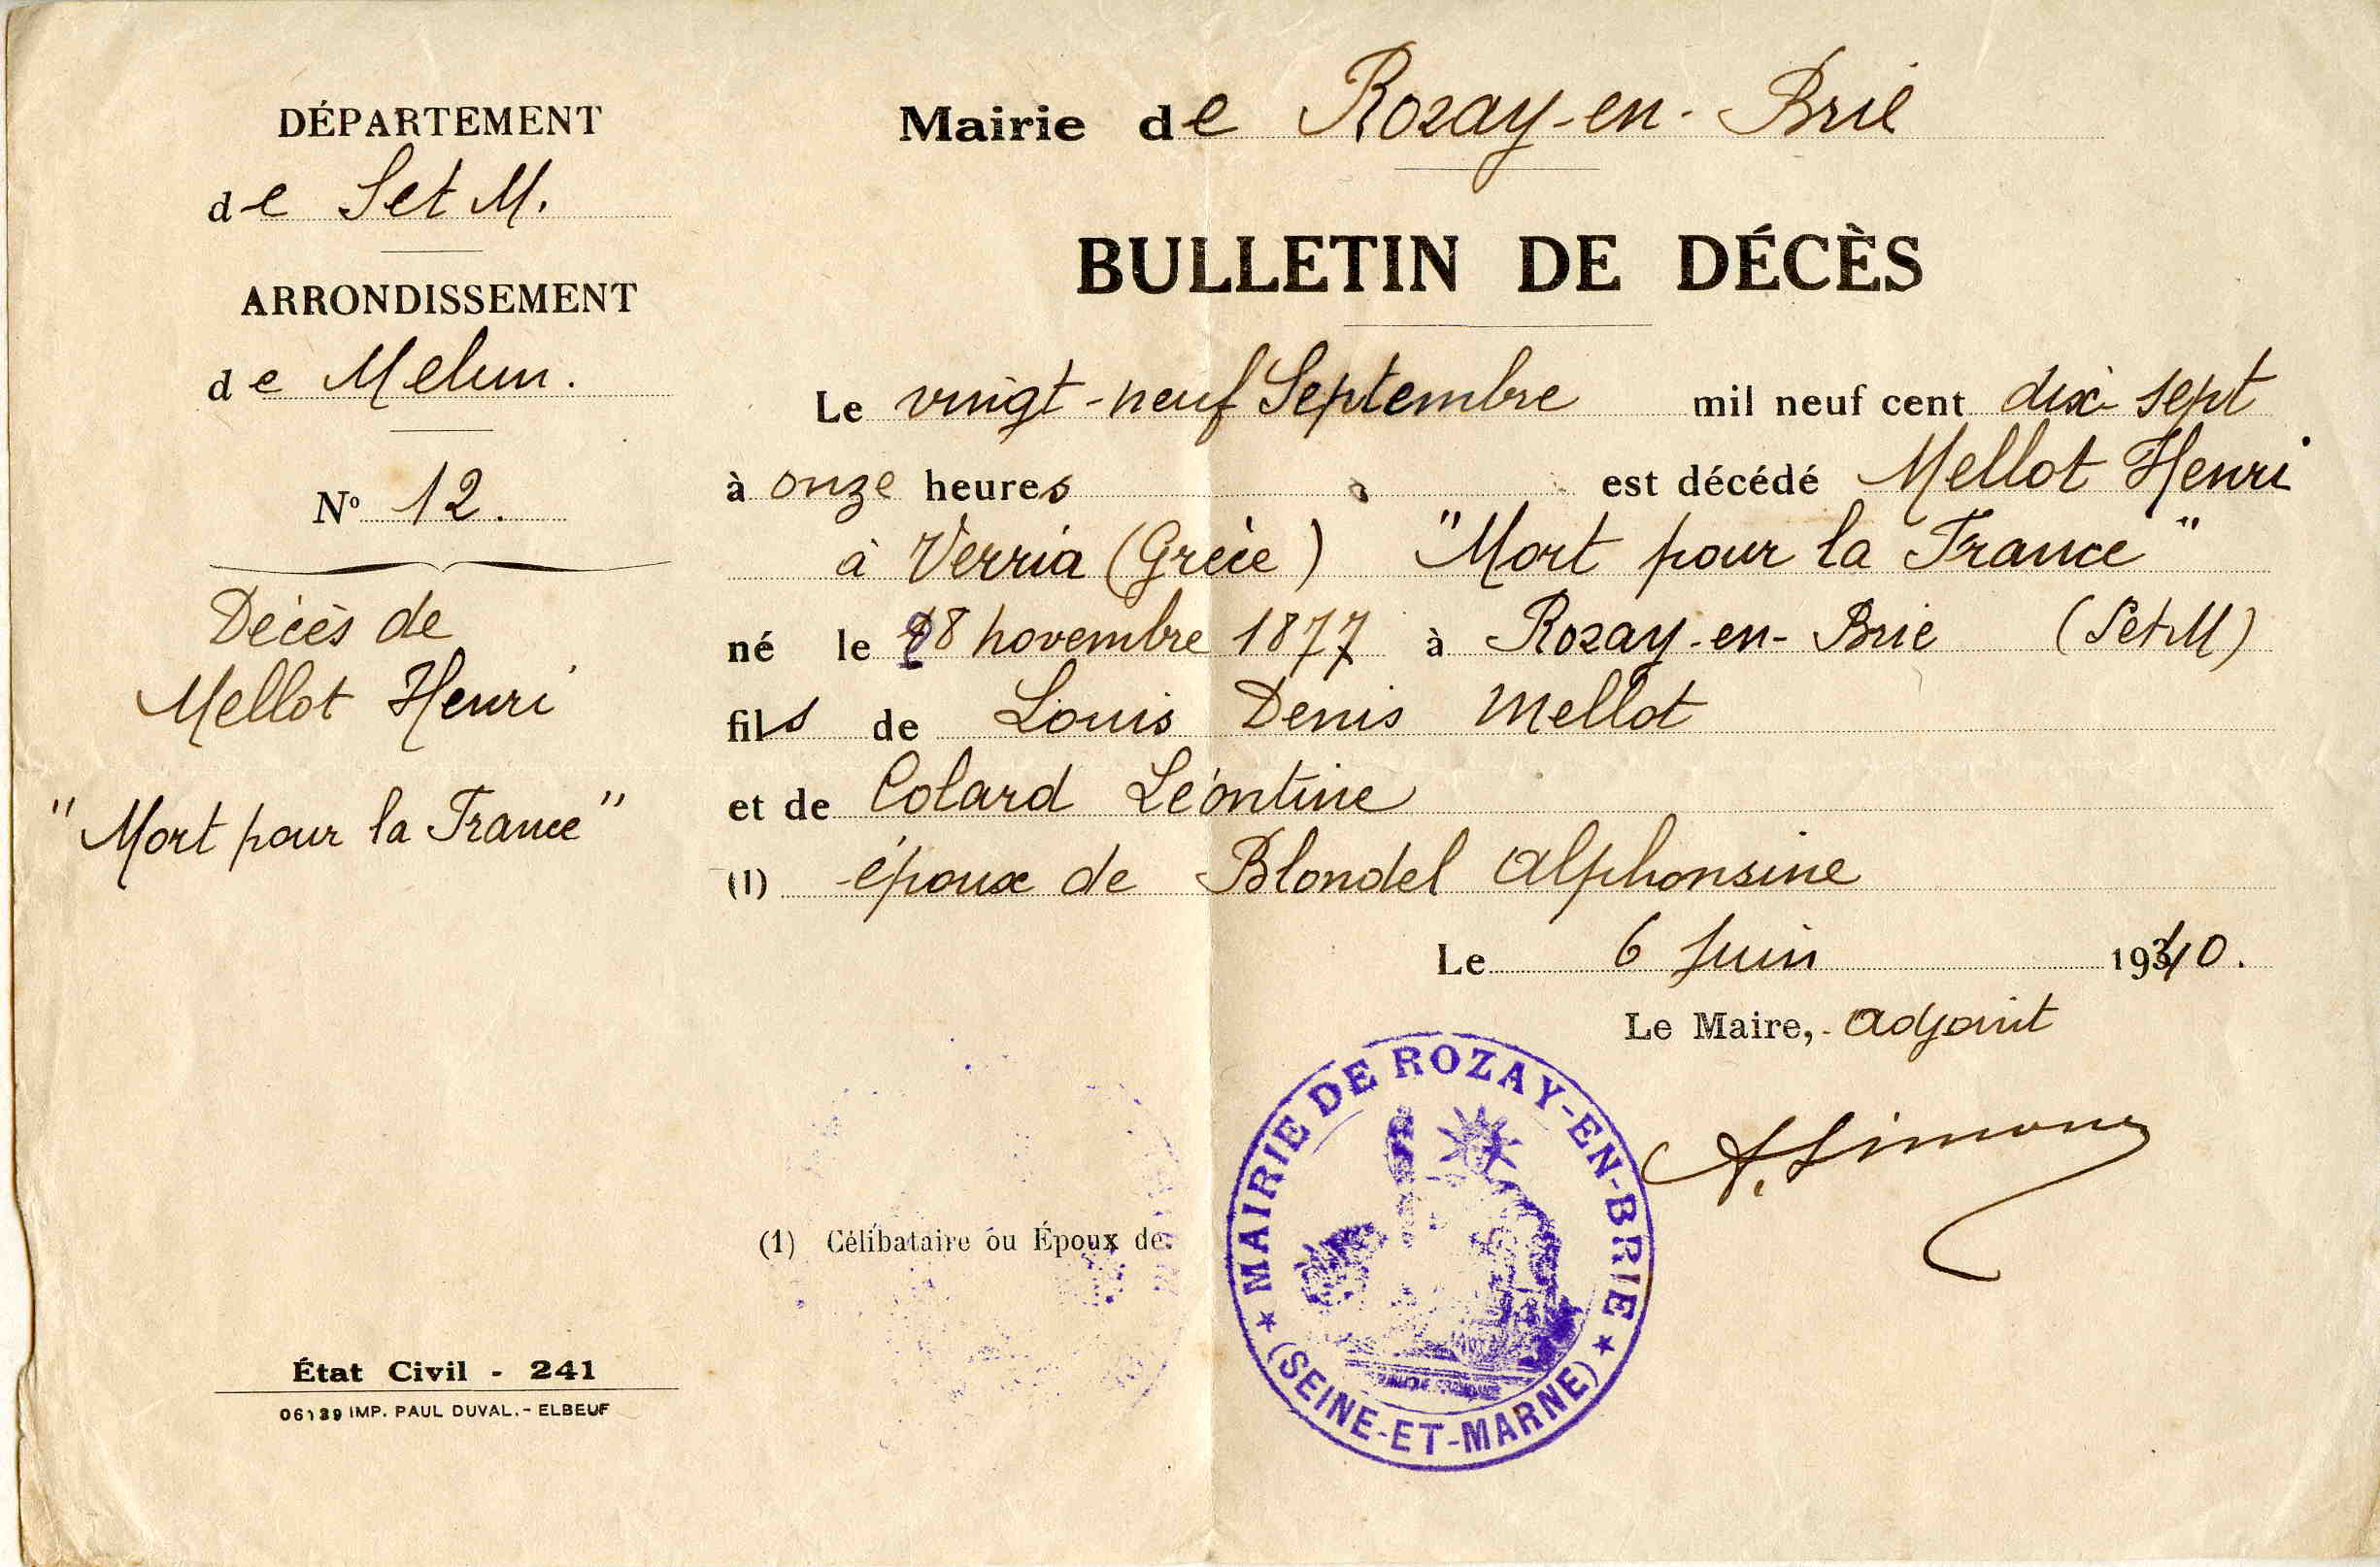 DÉPARTEMENT
de S et M.
ARRONDISSEMENT
de Melun.
N° 12.
Décès de
Mellot Henri
"Mort pour la France"
État Civil - 241
06139 IMP. PAUL DUVAL. - ELBEUF
Mairie de Rozay-en-Brie
BULLETIN DE DÉCÈS
Le vingt-neuf Septembre mil neuf cent dix-sept
à onze heures est décédé Mellot Henri
à Verria (Grèce) "Mort pour la France"
né le 28 novembre 1877 à Rozay-en-Brie (S et M)
fils de Louis Denis Mellot
et de Colard Léontine
(1) époux de Blondel Alphonsine
Le 6 Juin 1940.
Le Maire, adjoint
A. Simon
MAIRIE DE ROZAY-EN-BRIE
(SEINE-ET-MARNE)
(1) Célibataire ou Époux de.